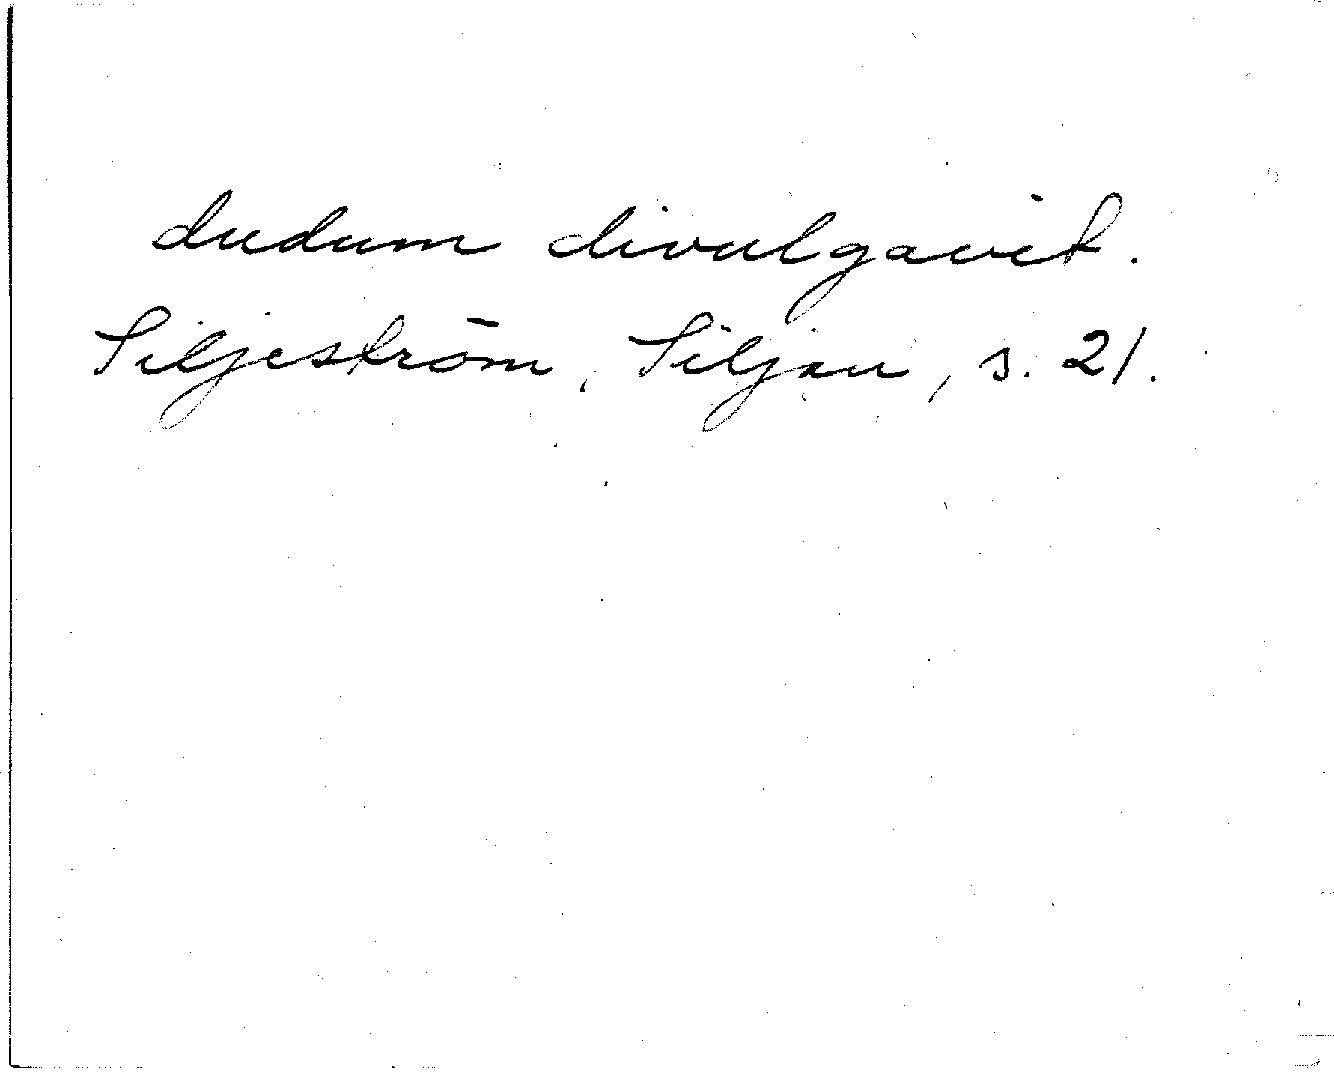 dudum divulgavit.
Siljeström, Siljan, s. 21.